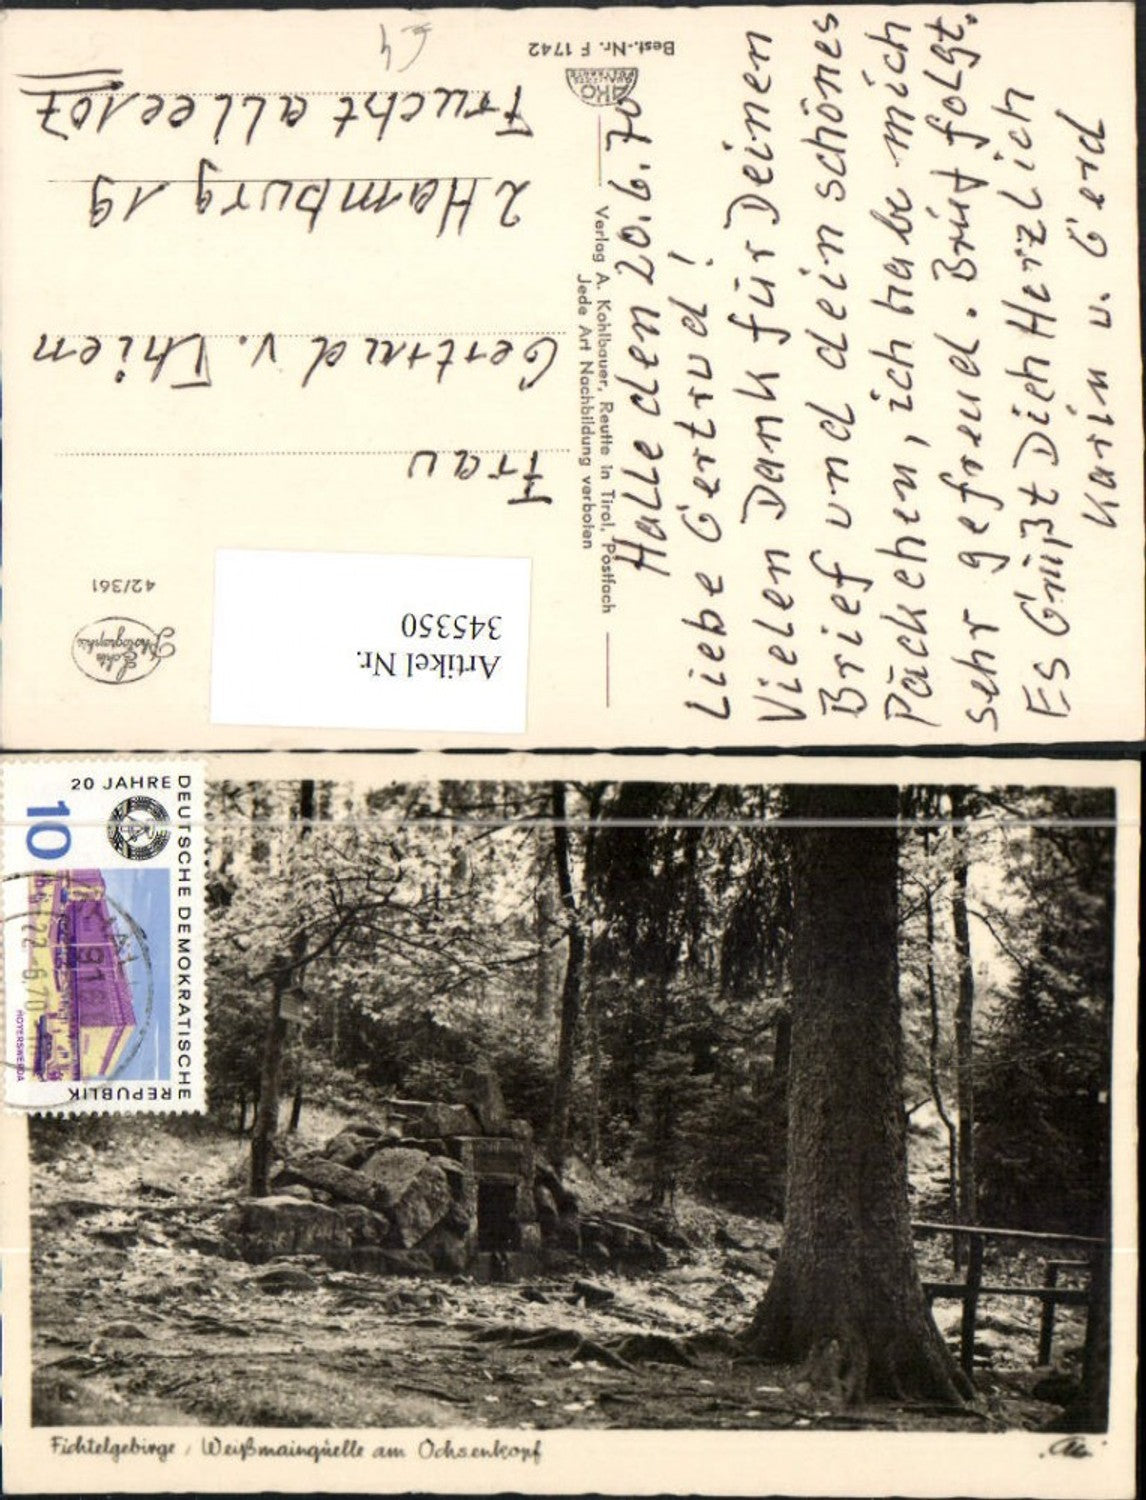 Best.-Nr. F 1742
AKO
QUALITÄTS
Verlag A. Kohlbauer, Reutte in Tirol, Postfach
Jede Art Nachbildung verboten
Echte
Photographie
42/361
Artikel Nr.
345350
Frau
Gertrud v. Thien
2 Hamburg 19
Fruchtallee 107
Halle den 20.6.70
Liebe Gertrud!
Vielen Dank für Deinen
Brief und dein schönes
Päckchen, ich habe mich
sehr gefreud. Brief folgt.
Es Grüßt Dich Herzlich
Karin u. Gerd
20 JAHRE DEUTSCHE DEMOKRATISCHE REPUBLIK
10
HOYERSWERDA
22.6.70
Fichtelgebirge / Weißmainquelle am Ochsenkopf